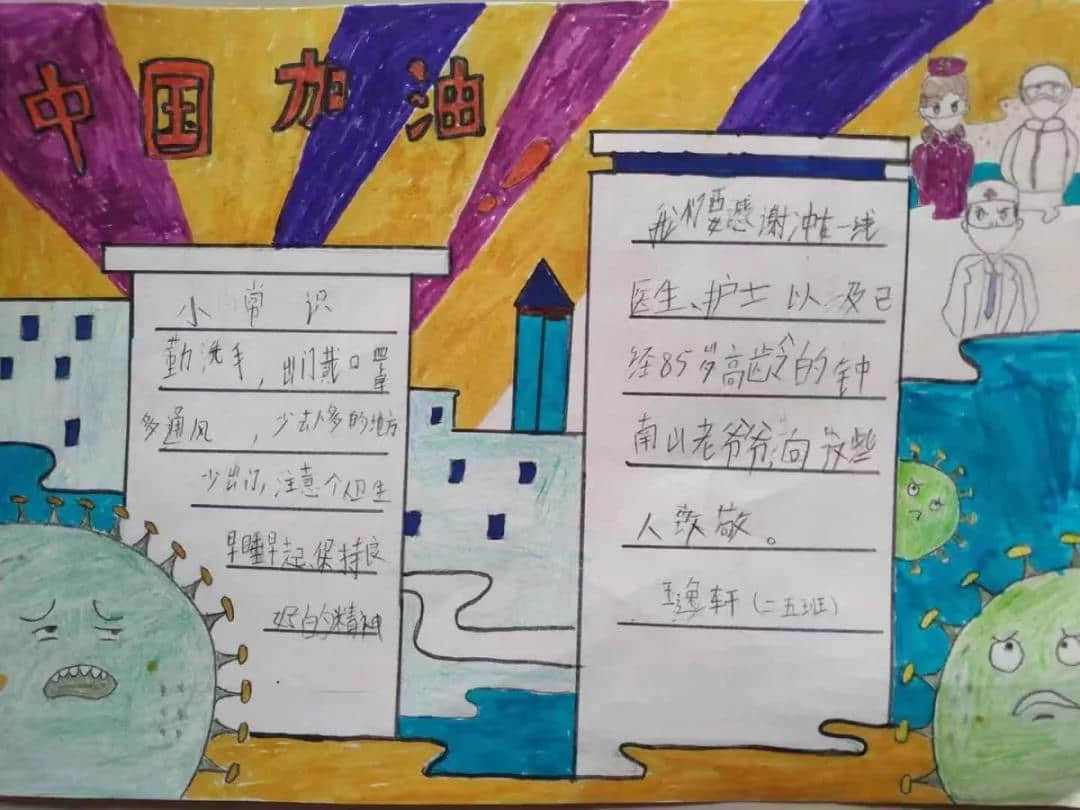 中国加油！
小常识
勤洗手，出门戴口罩
多通风，少去人多的地方
少出门，注意个人卫生
早睡早起、保持良
好的精神
我们要感谢冲在一线
医生、护士以及已
经85岁高龄的钟
南山老爷爷，向这些
人致敬。
王逸轩（二五班）